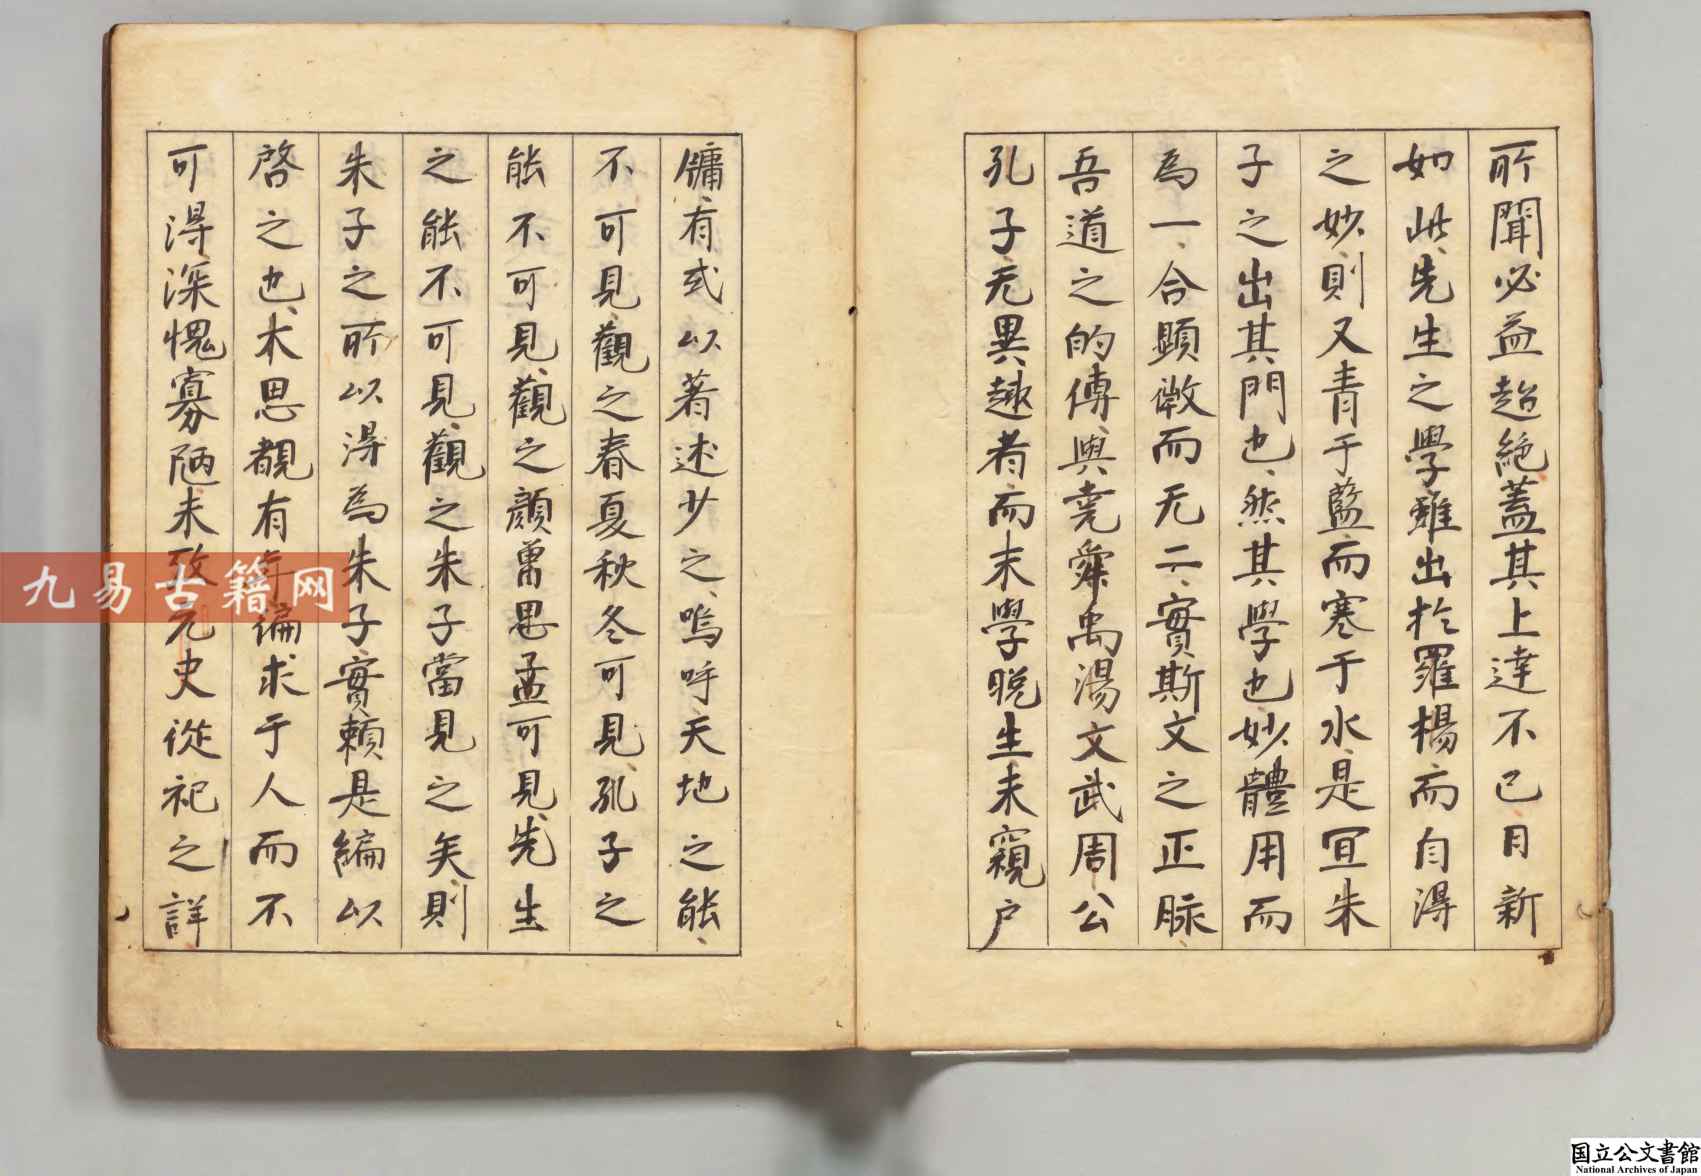 所聞必益超絶蓋其上達不已日新
如此、先生之學雖出於羅楊而自得
之妙、則又青于藍而寒于水、是宜朱
子之出其門也、然其學也、妙體用而
為一、合顯微而无二、實斯文之正脉、
吾道之的傳、與堯舜禹湯文武周公
孔子无異趣者而末學晚生未窺户
牖、有或以著述少之、嗚呼天地之能、
不可見、觀之春夏秋冬可見、孔子之
能不可見、觀之顔曽思孟可見、先生
之能不可見、觀之朱子當見之矣、則
朱子之所以得為朱子、實頼是編以
啓之也、木思覩有年徧求于人而不
可得深愧寡陋、未致元史從祀之詳
九易古籍网
国立公文書館
National Archives of Japan